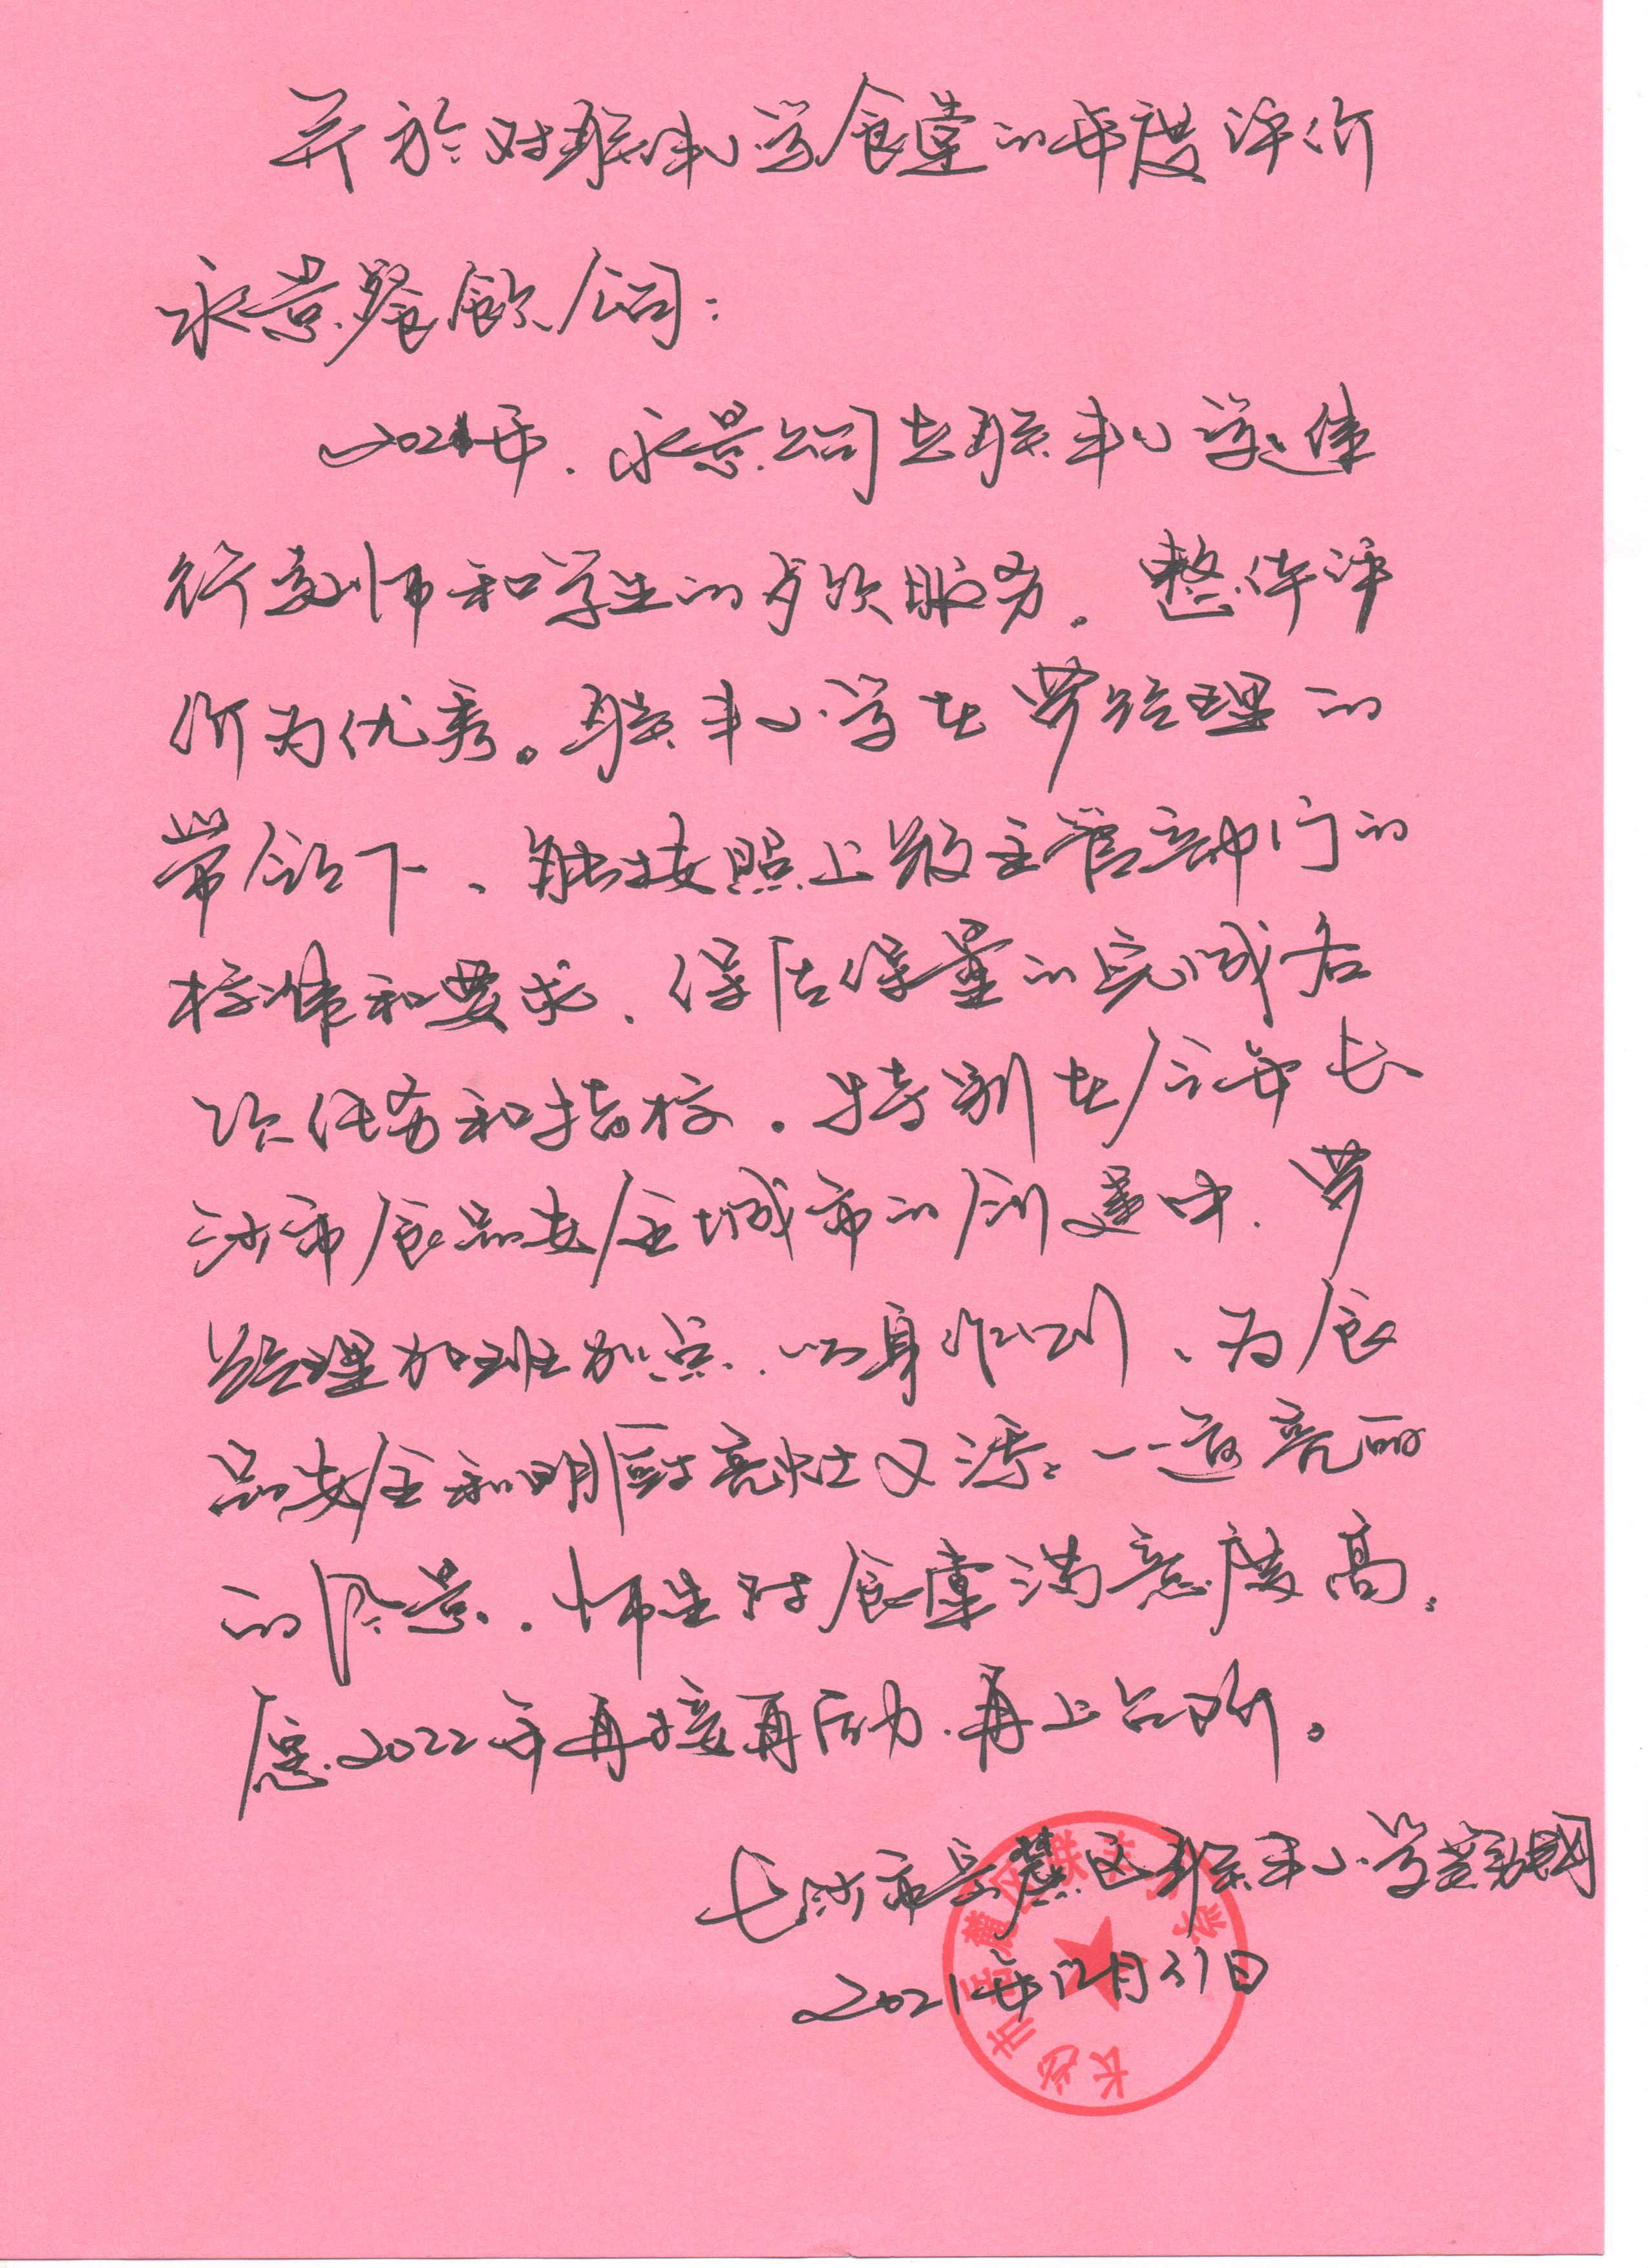 关于对联丰小学食堂的年度评价
永景餐饮公司:
2021年,永景公司在联丰小学进
行教师和学生的餐饮服务。整体评
价为优秀。联丰小学在罗经理的
带领下、能按照上级主管部门的
标准和要求、保质保量的完成各
项任务和指标。特别在今年长
沙市食品安全城市的创建中、罗
经理加班加点、以身作则、为食
品安全和明厨亮灶又添一道亮丽
的风景。师生对食堂满意度高。
愿2022年再接再厉、再上台阶。
长沙市岳麓区联丰小学
2021年12月31日
长沙市岳麓区联丰小学